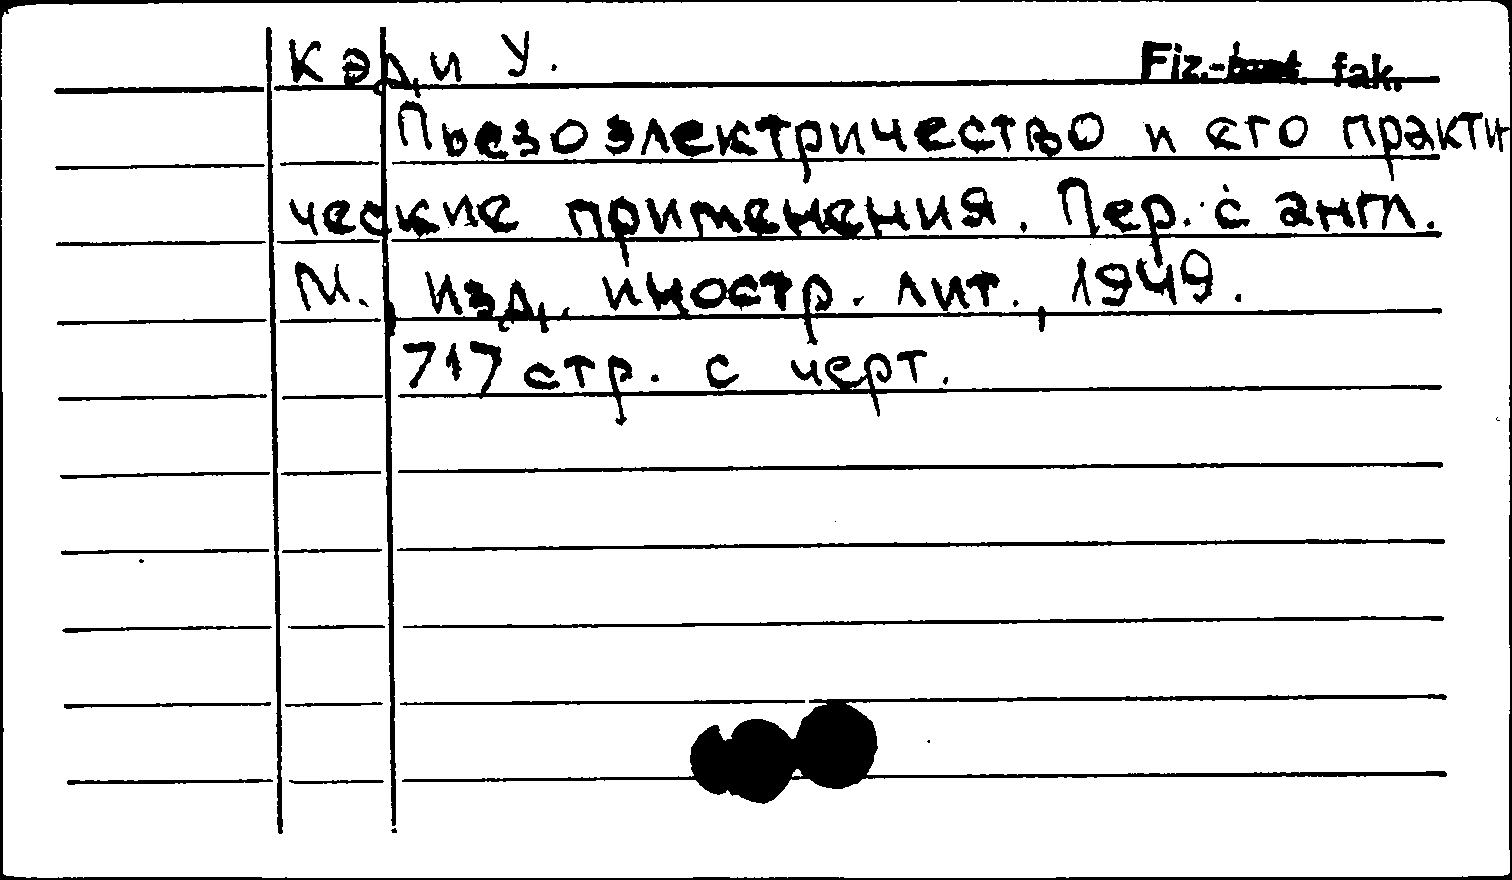 Кэди У.
Fiz.- fak.
Пьезоэлектричество и его практи
ческие применения. Пер. с англ.
М., Изд. иностр. лит., 1949.
717 стр. с черт.